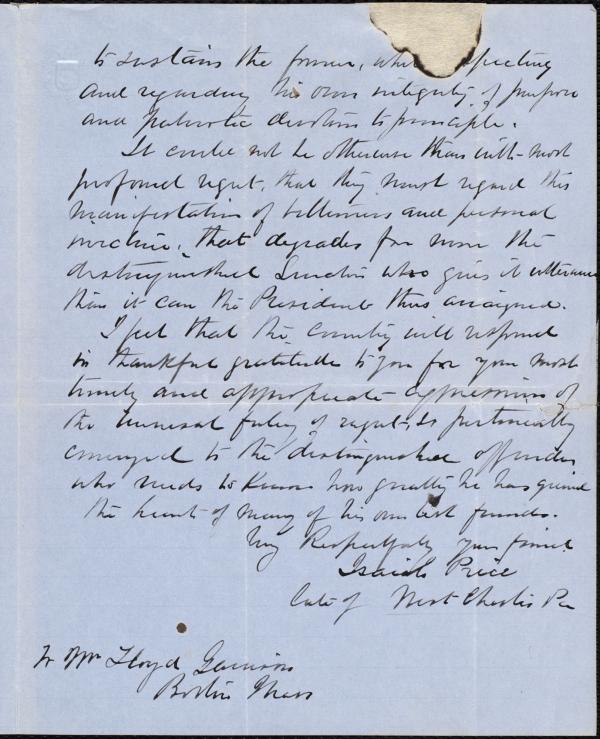 to sustain the former, while respecting
and regarding his own integrity of purpose
and patriotic devotion to principle.
It could not be otherwise than with most
profound regret, that they must regard this
manifestation of bitterness and personal
that degrades far more the
distinguished Senator who gives it utterance
than it can the President thus arraigned.
I feel that the Country will respond
in thankful gratitude to you for your most
timely and appropriate expression of
the universal feeling of regret, so pertinently
conveyed to the distinguished offender
who needs to know how greatly he has grieved
the hearts of many of his own best friends.
Very Respectfully your friend
Isaiah Price
late of West Chester Pa
To Wm Lloyd Garrison
Boston Mass